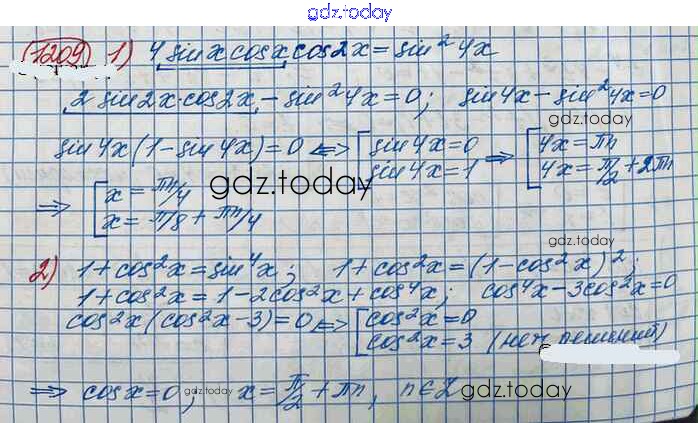 gdz.today
1209 1) 4 sin x cos x cos 2x = sin² 4x
2 sin 2x · cos 2x - sin² 4x = 0; sin 4x - sin² 4x = 0
sin 4x (1 - sin 4x) = 0 <=> [ sin 4x = 0 => [ 4x = πn
sin 4x = 1 4x = π/2 + 2πn
=> [ x = πn/4 gdz.today
x = π/8 + πn/4 gdz.today
2) 1 + cos² x = sin⁴ x; 1 + cos² x = (1 - cos² x)²;
1 + cos² x = 1 - 2cos² x + cos⁴ x; cos⁴ x - 3cos² x = 0
cos² x (cos² x - 3) = 0 <=> [ cos² x = 0
cos² x = 3 (нет решений)
=> cos x = 0, gdz.today x = π/2 + πn, n ∈ Z gdz.today